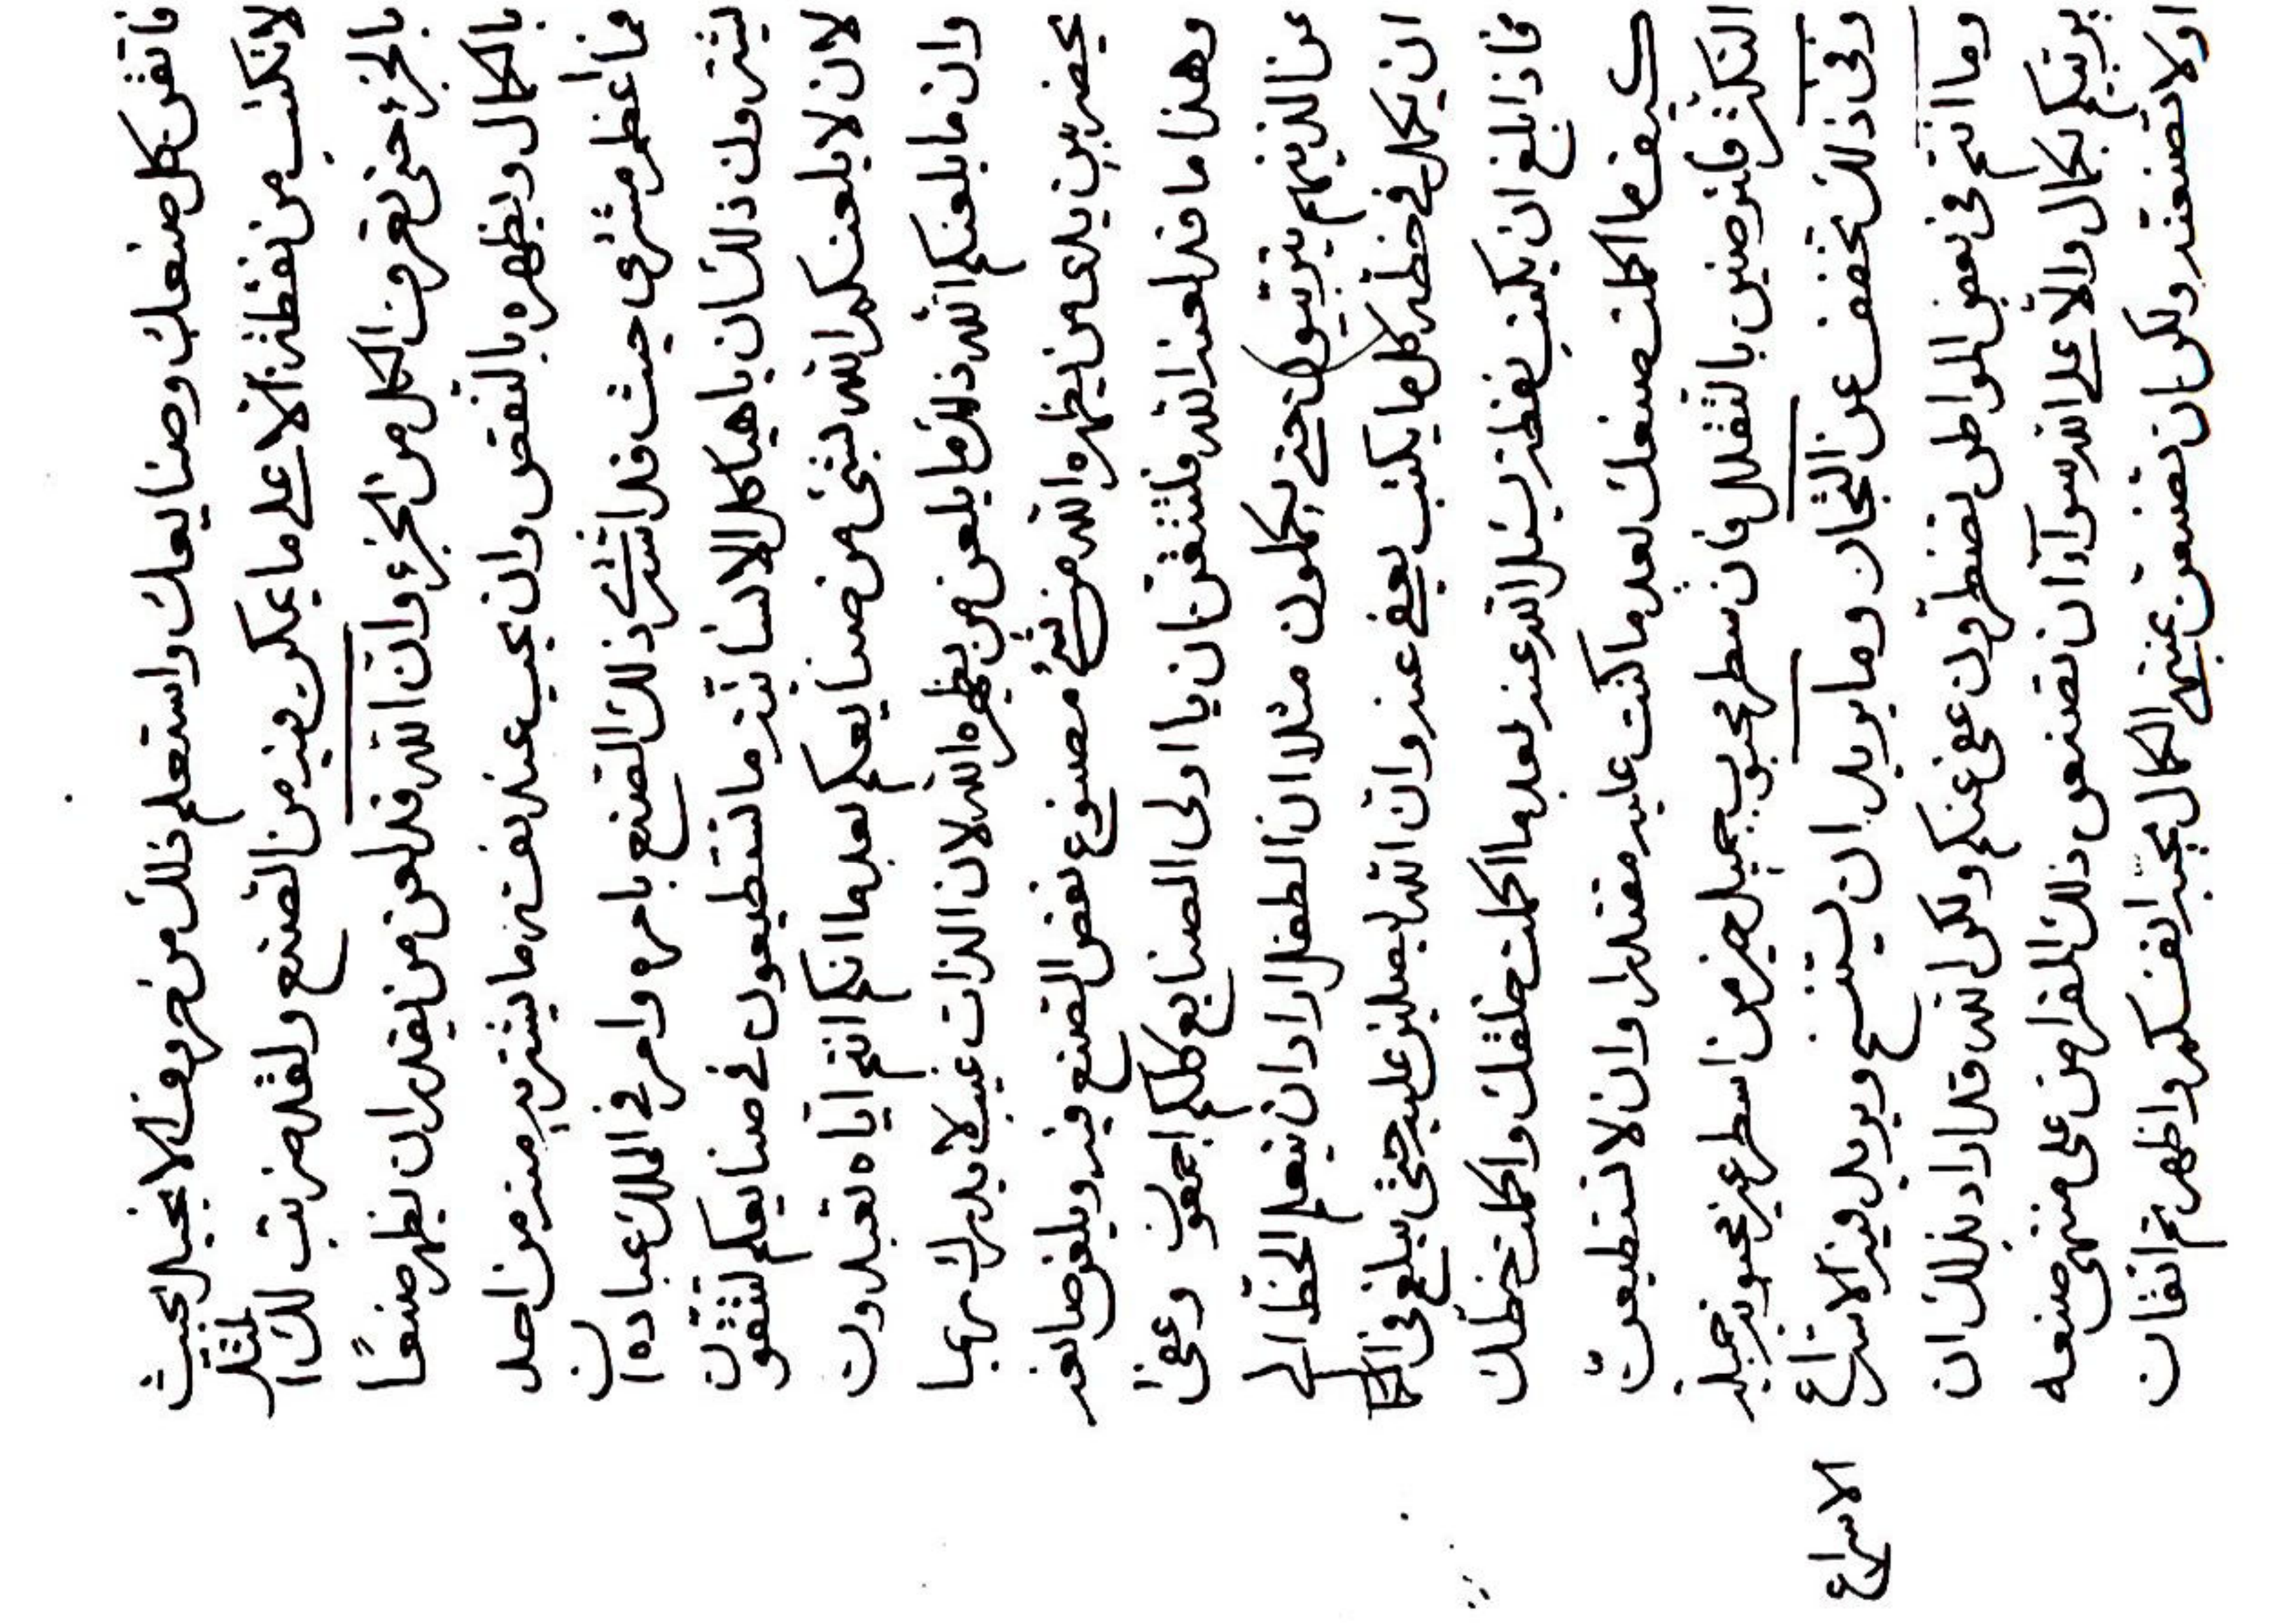 فاتقن كل صنعك وصنايعك واستعلم ذلك من حروف الانجيل بحيث
لا تكتب من نقطة الا على ما يمكن فيه من الصنع ولقد ضربت لك المثل
بالجزء حتى تعرفن الكل من الجزء وان الله قد لعن من يقدر ان يظهر صنعًا
بالكمال ويظهره بالنقص وان يجيب عند نفسه ما يشتريه منه من احد
فما أعظم مشترى حيث قد اشترى ذلك الصنع بامره وامر في الملك عباده ان
ليشترون ذلك ان يا هياكل الانسانية ما تستطيعون في صنايعكم لتتقنون
لان لا يلعنكم الله بشئ من صنايعكم بعد ما انكم انتم اياه تعبدون
وان ما يلعنكم الله ذلك ما يلعن من يظهره الله لان الذات غيب لا يدرك ربما
يحضر بين يدى من يظهره الله من شئ مصنوع نقض الصنع فيه ويلعن صانعه
وهذا ما قد لعنه الله فلتتقنن ان يا اولى الصنايع كلكم اجمعون وعفى
عن الذينهم يتربيون حتى يكملون مثلا ان الطفل اراد ان يتعلم الخط الى
ان يكمل في خطه كل ما يكتب يعفى عنه وان الله ليصلين عليه حتى يبلغ في الكمال
فاذا بلغ ان يكتب نقطة يسئل الله عنه بعد ما اكملت خلقك واكملت خطك
كيف ما اكملت صنعك بعد ما كنت عليه مقتدرا وان لا تستطيعنّ
التكثر فلترضين بالتقلل فان سطر محبوب جميل خير من اسطر غير محبوبة جميلة
وفى ذلك تخفف عن التجار وما يريد ان يستنسخ ويريد فيه الاسراع
الاسراع
وما انتم في بعض المواطن تضطرون عفى عنكم ولكن الله قد اراد بذلك ان
يربيكم بكمال والا على الله سوآء ان تصنعن ذلك على منتهى صنعه
او لا تصنعنه ولكن ان تصنعن بمنتهى الكمال انفسكم واظهرتم اتقان